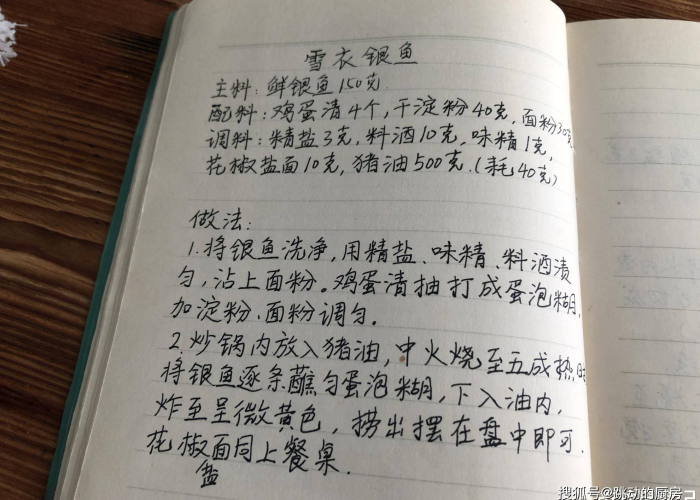 雪衣银鱼
主料:鲜银鱼150克.
配料:鸡蛋清4个,干淀粉40克,面粉30克,
调料:精盐3克,料酒10克,味精1克,
花椒盐面10克,猪油500克.(耗40克)
做法:
1.将银鱼洗净,用精盐、味精、料酒渍
匀,沾上面粉。鸡蛋清抽打成蛋泡糊,
加淀粉、面粉调匀。
2.炒锅内放入猪油,中火烧至五成热时
将银鱼逐条蘸匀蛋泡糊,下入油内,
炸至呈微黄色,捞出摆在盘中即可.
花椒面同上餐桌.
盐
搜狐号@跳动的厨房